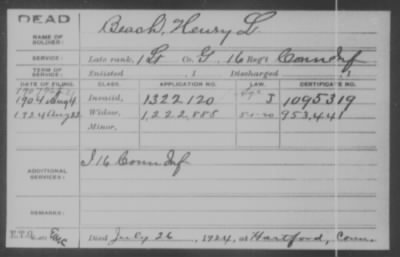 DEAD
NAME OF SOLDIER: Beach, Henry L.
SERVICE: Late rank, 1 Lt Co. G, 16 Reg't Conn Inf
TERM OF SERVICE: Enlisted , 1 Discharged , 1
DATE OF FILING. CLASS. APPLICATION NO. LAW. CERTIFICATE NO.
1904 Aug 4 Invalid, 1322120 J 1095319
1924 Aug 22 Widow, 1,222,885 5-1-20 95344
Minor,
ADDITIONAL SERVICES: I 16 Conn Inf
REMARKS:
Died July 26, 1924, at Hartford, Conn.